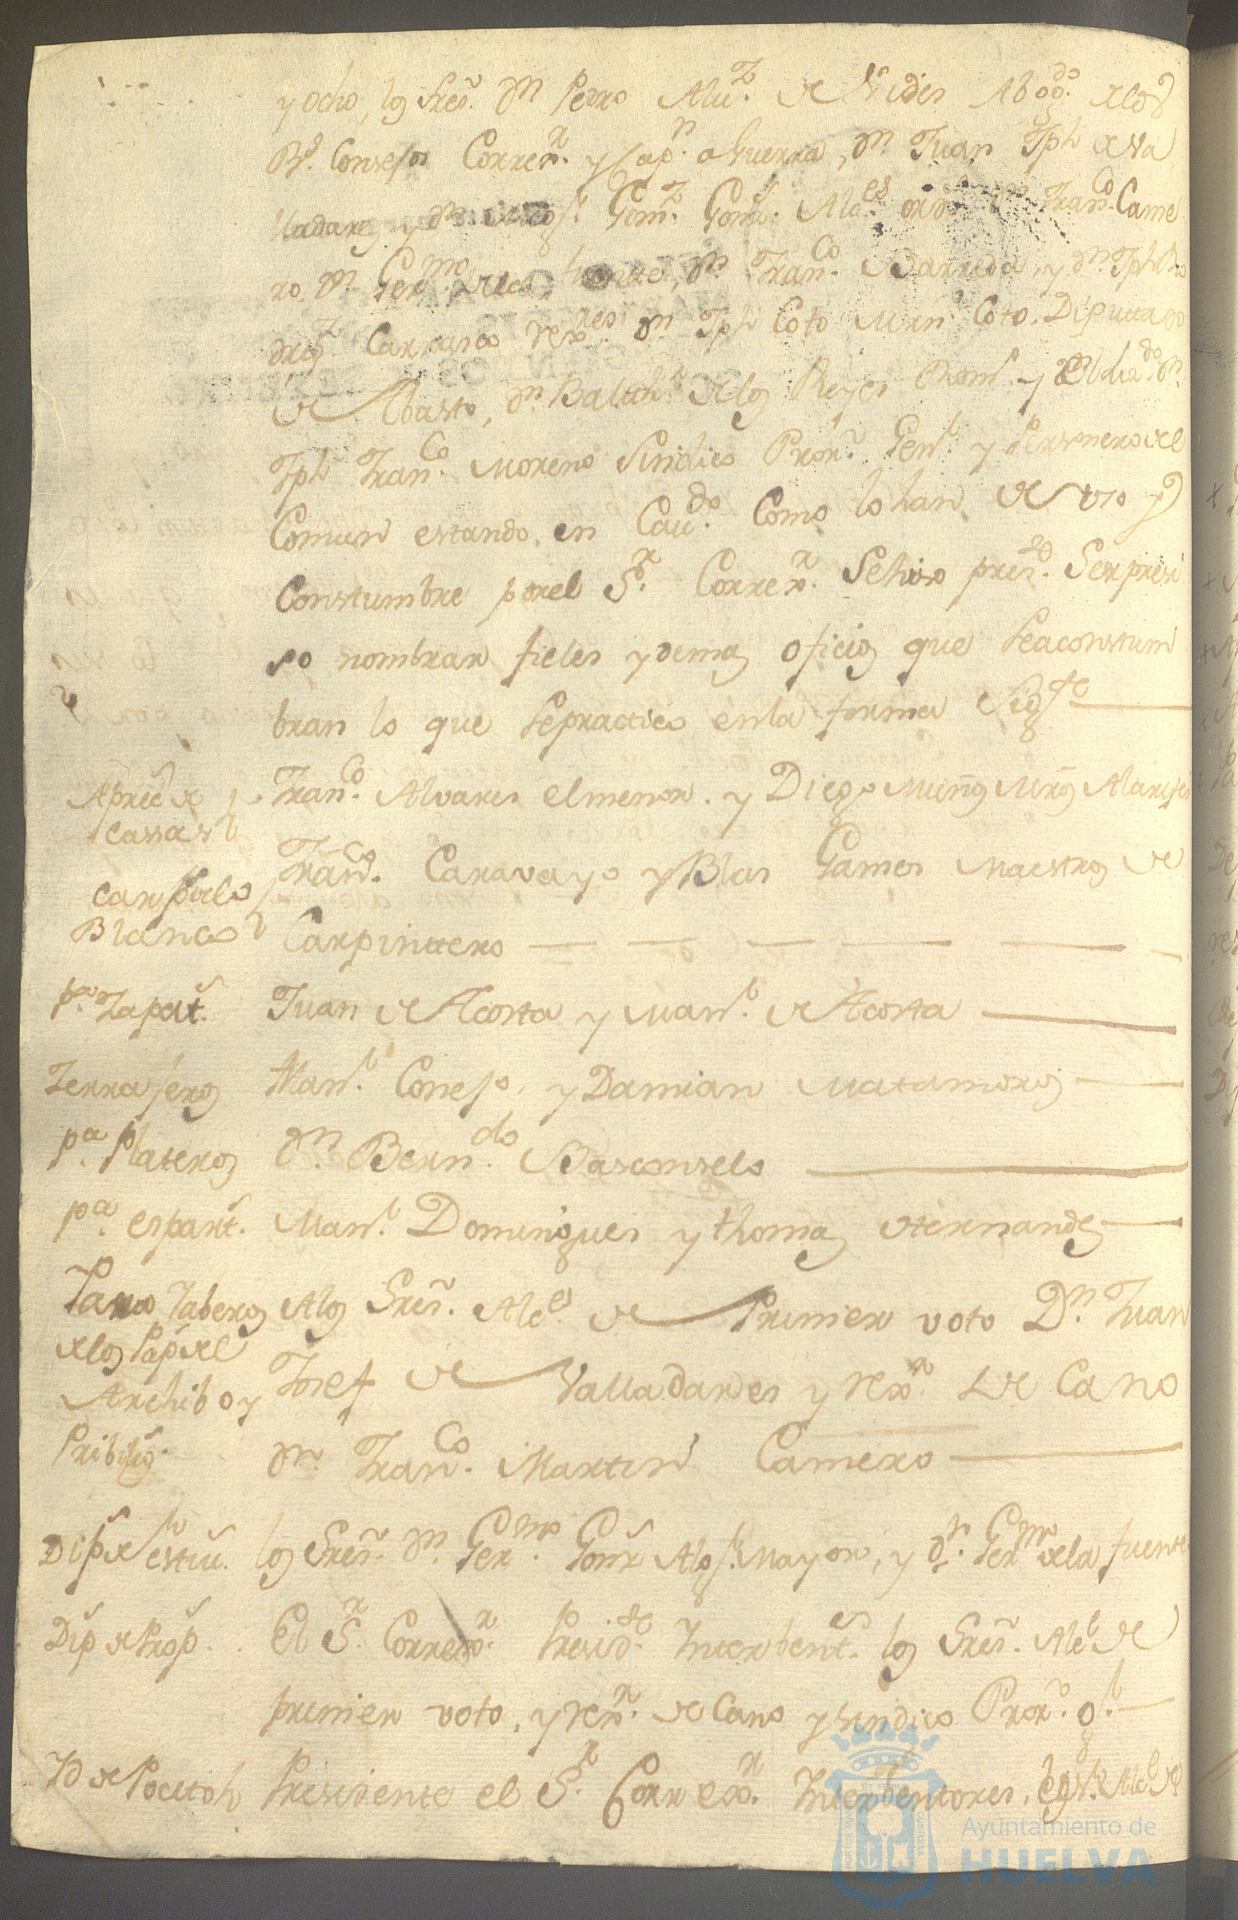 y ocho, los Sres. Dn Pedro Alvz. de Vides Abogdo. de los
Rs. Consejos Correxr. y Capn. a Guerra, Dn. Juan Jph de Va
lladares y Dn. Gomz. Alces. ordo. Dn Franco. Came
ro, Dn. Germo. de la fuente, Dn. Franco. Barreda, y Dn. Jph Ro
drigz. Carrasco rexres. Dn Jph Coto Mrn. Coto. Diputado
de Abasto, Dn. Balthr. de los Reyes y Dn.
Jph Franco. Moreno Sindico Pror. Genl. y Personero del
Comun estando en Cavdo. Como lo han de uso y
Constumbre por el Sor. Correxr. Se hizo presto. Ser presi
so nombrar fieles y demas oficios que se aconstum
bran lo que se practico en la forma Sigte
Apreс de casas
Franco. Alvares el menor. y Diego Muños Mros Alarifes
carpdelo Blanco
Franco. Caravayo y Blas Games Maestros de
Carpintero
pa. Zapats.
Juan de Acosta y Manl. de Acosta
Zerrajeros
Manl. Conejo, y Damian Matamoros
pa. Plateros
Dn. Berndo. Basconselo
pa. espart.
Manl. Domingues y thomas Hernands
Llaveros
de los Pap. del
Archibo y
Pribilegs.
A los Sres. Alces de Primer voto Dn. Juan
Josef de Valladares y rexr. Decano
Dn. Franco. Martin Camero
Dip. de
los Sres. Dn. Germo. Gonz Alg. Mayor, y Dn. Germo. de la fuente
Dip de Prop.
El Sr. Correxr. Presidte. Interbents. los Sres. Alce de
primer voto, y rexr. decano y sindico Pror. gl.
Yd de Pocitoh
Presidente el Sr. Correxr. Interbentores, los Sres Alce de
Ayuntamiento de
HUELVA